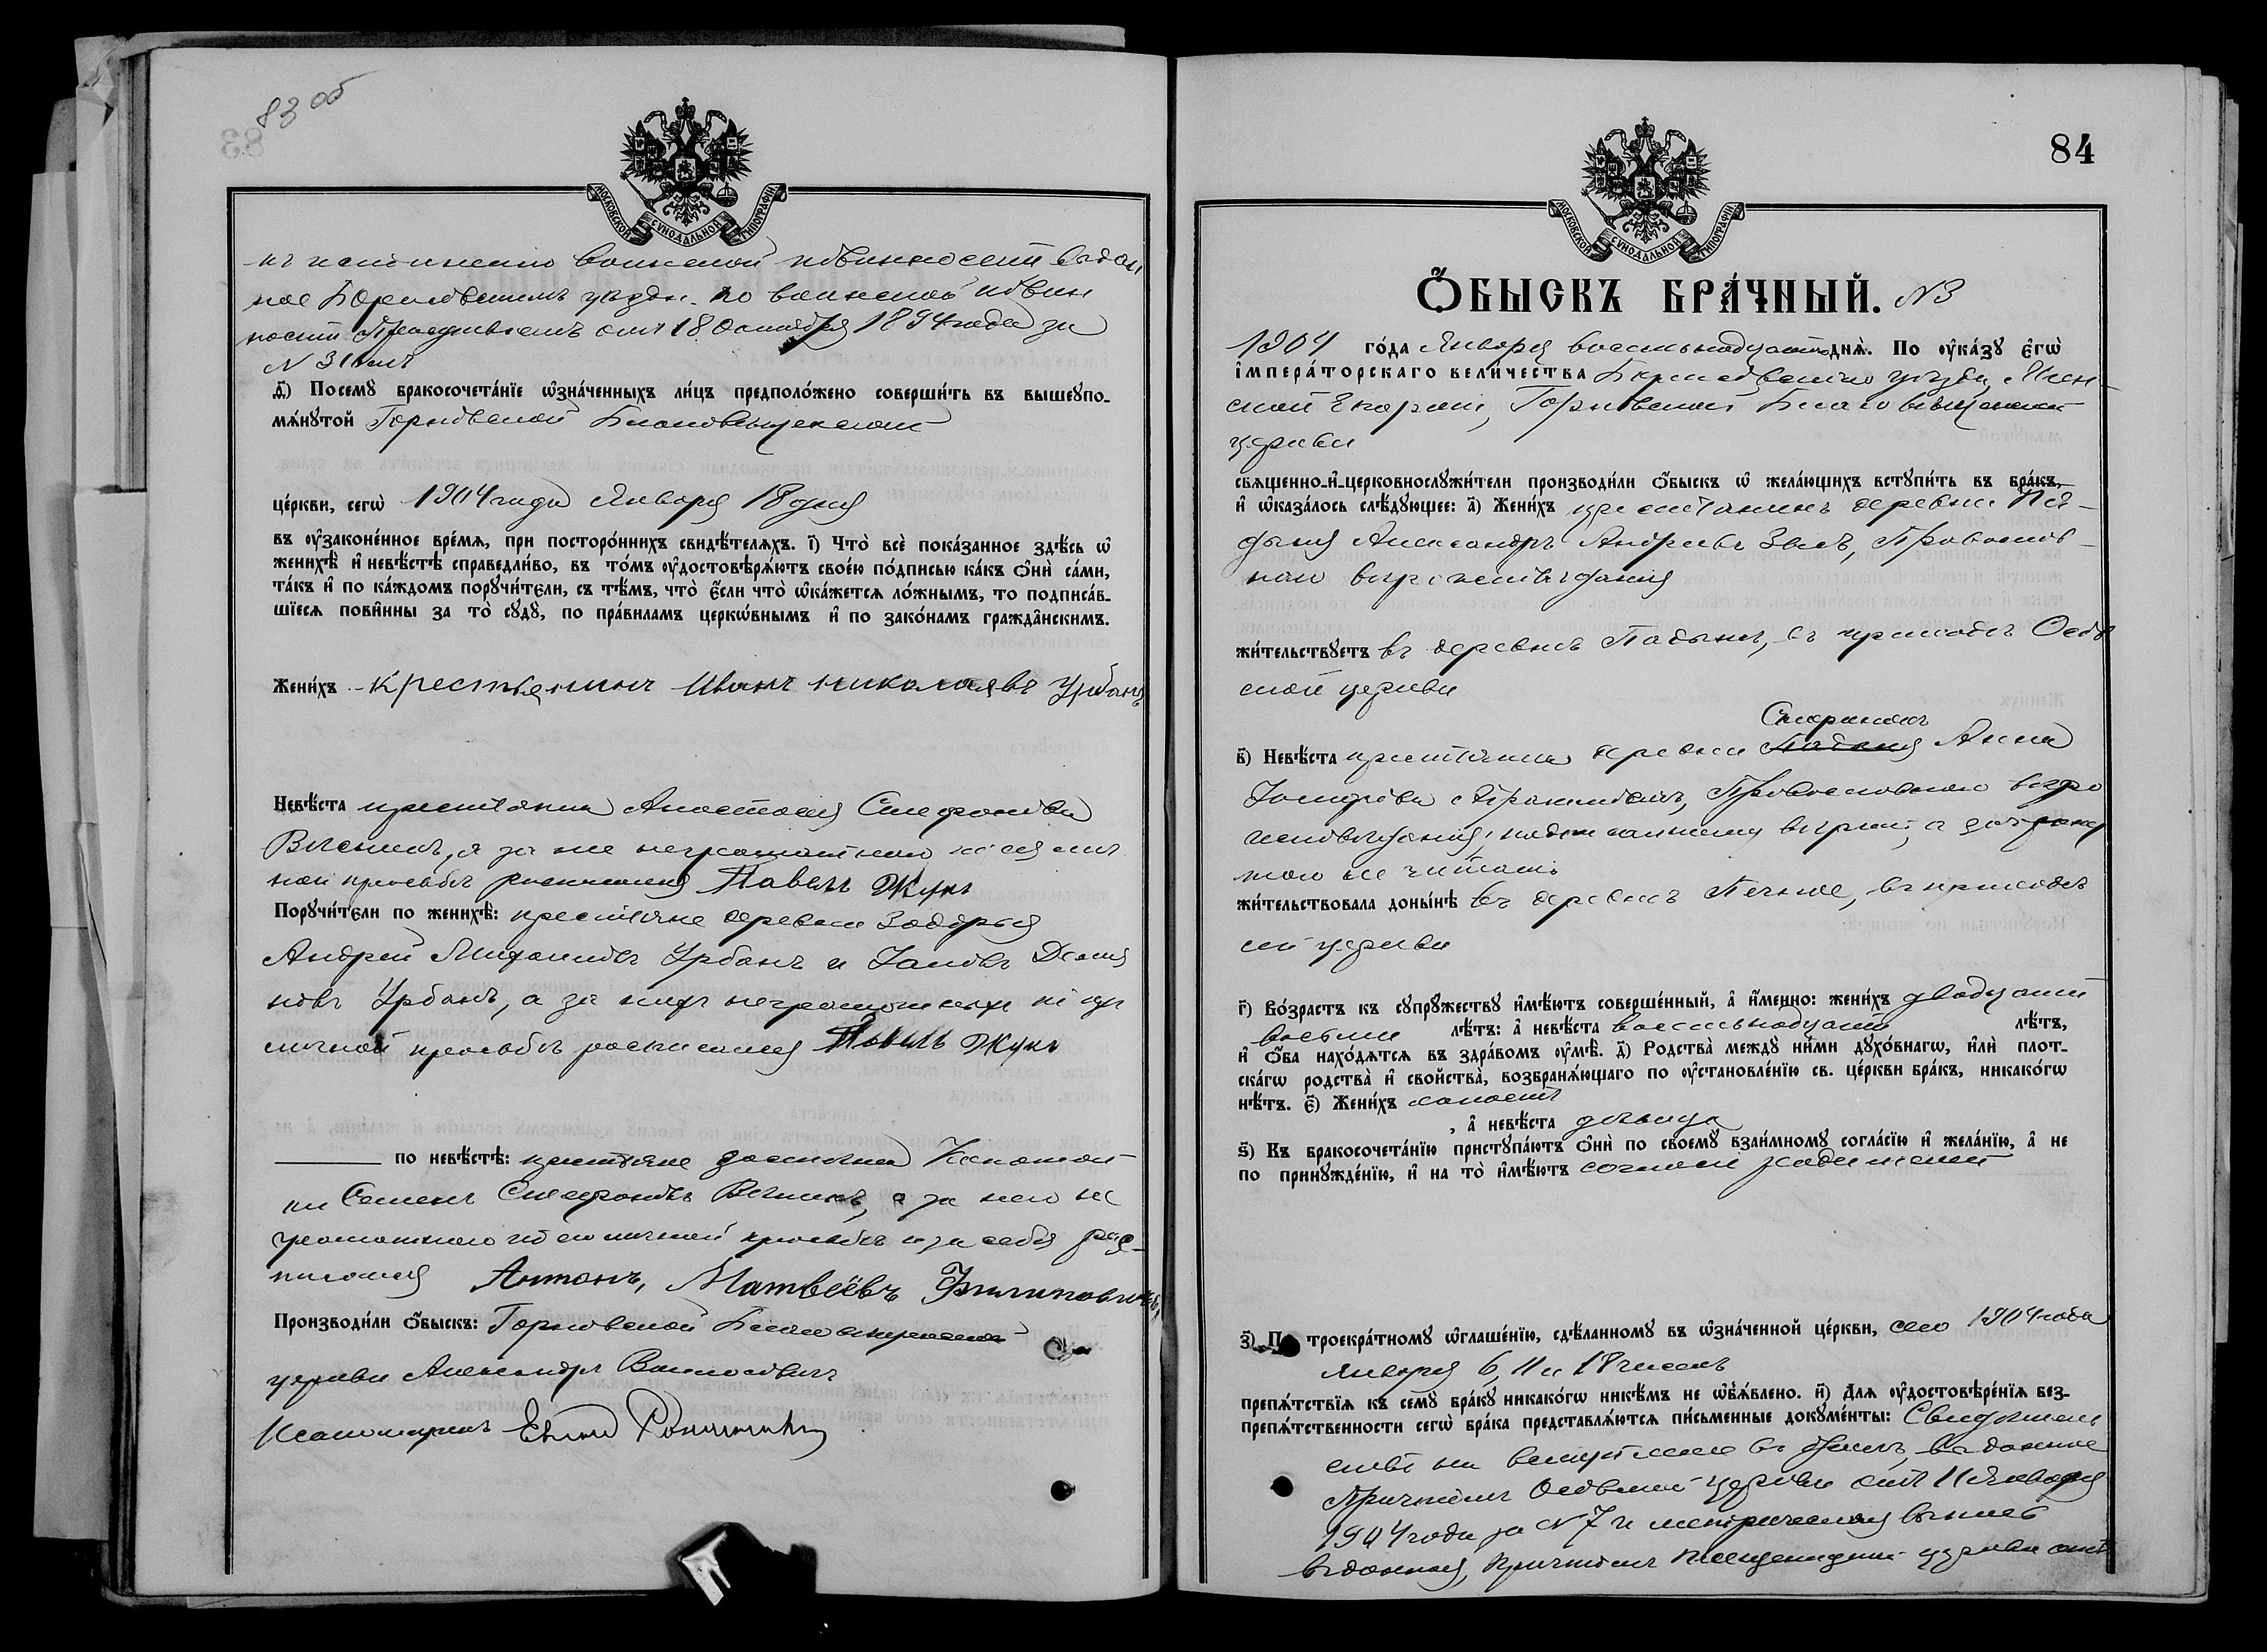 83 об
МОСКОВСКОЙ СѴНОДАЛЬНОЙ ТИПОГРАФІИ
воинской повинности выдан
ное Борисовскимъ уѣздн. по воинской повин
ности Присутствіемъ отъ 18 Октября 1894 года за
N 31
д҃) Посемꙋ бракосочета́нїе ѡ҆зна́ченныхъ ли́цъ предполо́жено соверши́ть въ вышеꙋпо-
мѧ́нꙋтой Горковской Благовѣщенской
це́ркви, сегѡ̀ 1904 года Января 18 дня
въ ᲂу҆зако́не́нное вре́мѧ, при посторо́ннихъ свидѣ́телѧхъ. і҃) Что̀ всѐ пока́занное здѣ́сь ѡ҆
женихѣ̀ и҆ невѣ́стѣ справедли́во, въ то́мъ ᲂу҆достовѣрѧ́ютъ свое́ю по́дписью ка́къ ѻ҆нѝ са́ми,
та́къ и҆ по ка́ждомъ порꙋчи́тели, съ тѣ́мъ, что̀ є҆́сли что̀ ѡ҆ка́жетсѧ ло́жнымъ, то подписа́в-
шїесѧ пови́нны за то̀ сꙋдꙋ̀, по пра́виламъ церкѡ́внымъ и҆ по зако́намъ гражда̑нскимъ.
Жени́хъ крестьянинъ Иванъ николаявъ Урбанъ
Невѣ́ста крестьянка Анастасія Стефанова
а за нее неграмотную по ея лич
ной просьбѣ росписался Павелъ Жукъ
Порꙋчи́тели по женихѣ̀: крестьяне деревни Задорья
Андрей Михаиловъ Урбанъ и Іаковъ Деми
новъ Урбанъ, а за нихъ неграмотныхъ по ихъ
личной просьбѣ росписался Павелъ Жукъ
по невѣ́стѣ: крестьяне
Семенъ Стефановъ а за него не
грамотнаго по его личной просьбѣ и за себя рос-
писался Антонъ, Матвѣевъ Филиповичъ
Производи́ли ѻ҆́быскъ: Горковской Благовѣщенской
церкви Александръ
Псаломщикъ
84
МОСКОВСКОЙ СѴНОДАЛЬНОЙ ТИПОГРАФІИ
Ѻ҆́БЫСКЪ БРА́ЧНЫЙ. N 3
1904 го́да Января восемьнадцатаго днѧ̀. По ᲂу҆ка́зꙋ є҆гѡ̀
і҆мпера́торскагѡ вели́чества Борисовскаго уѣзда, Мин-
ской Епархіи, Горковской Благовѣщенской
церкви
свѧще́нно-и҆-церковнослꙋжи́тели производи́ли ѻ҆́быскъ ѡ҆ жела́ющихъ встꙋпи́ть въ бра́къ,
и҆ ѡ҆каза́лось слѣ́дꙋющее: а҃) Жени́хъ крестьянинъ деревни Па-
дыня Александръ Андреевъ Православ-
наго вѣроисповѣданія
жи́тельствꙋетъ въ деревнѣ Падынѣ, въ приходѣ Осов
ской церкви
в҃) Невѣ́ста крестьянка деревни Анна
Православнаго вѣро
исповѣданія,
жи́тельствовала доны́нѣ въ деревнѣ Печное, въ приходѣ
сей церкви
г҃) Во́зрастъ къ сꙋпрꙋ́жествꙋ и҆мѣ́ютъ соверше́нный, а҆ и҆́менно: жени́хъ двадцати
восьми лѣ́тъ: а҆ невѣ́ста восемьнадцати лѣ́тъ,
и҆ ѻ҆́ба нахо́дѧтсѧ въ здра́вомъ ᲂу҆мѣ̀. д҃) Родства̀ междꙋ ни́ми дꙋхо́внагѡ, и҆лѝ плот-
ска́гѡ родства̀ и҆ свойства̀, возбранѧ́ющаго по ᲂу҆становле́нїю св. це́ркви бра́къ, никако́гѡ
нѣ́тъ. є҃) Жени́хъ холостъ
, а҆ невѣ́ста дѣвица
ѕ҃) Къ бракосочета́нїю пристꙋпа́ютъ ѻ҆нѝ по своемꙋ̀ взаи́мномꙋ согла́сїю и҆ жела́нїю, а҆ не
по принꙋжде́нїю, и҆ на то̀ и҆мѣ́ютъ согласіе родителей
з҃) По троекра́тномꙋ ѡ҆глаше́нїю, сдѣ́ланномꙋ въ ѡ҆зна́ченной це́ркви, сего 1904 года
Января 6, 11 и 18 чиселъ
препѧ́тствїѧ къ семꙋ̀ бра́кꙋ никако́гѡ никѣ́мъ не ѡ҆б̾ѧ́влено. и҃) Длѧ ᲂу҆достовѣре́нїѧ без-
препѧ́тственности сегѡ̀ бра́ка представлѧ́ютсѧ пи́сьменные докꙋме́нты: Свидѣтель
ство на вступленіе въ бракъ, выданное
Причтомъ Осовской церкви отъ 11 Января
1904 года за N 7 и метрическая выпись
выданная, Причтомъ церкви отъ